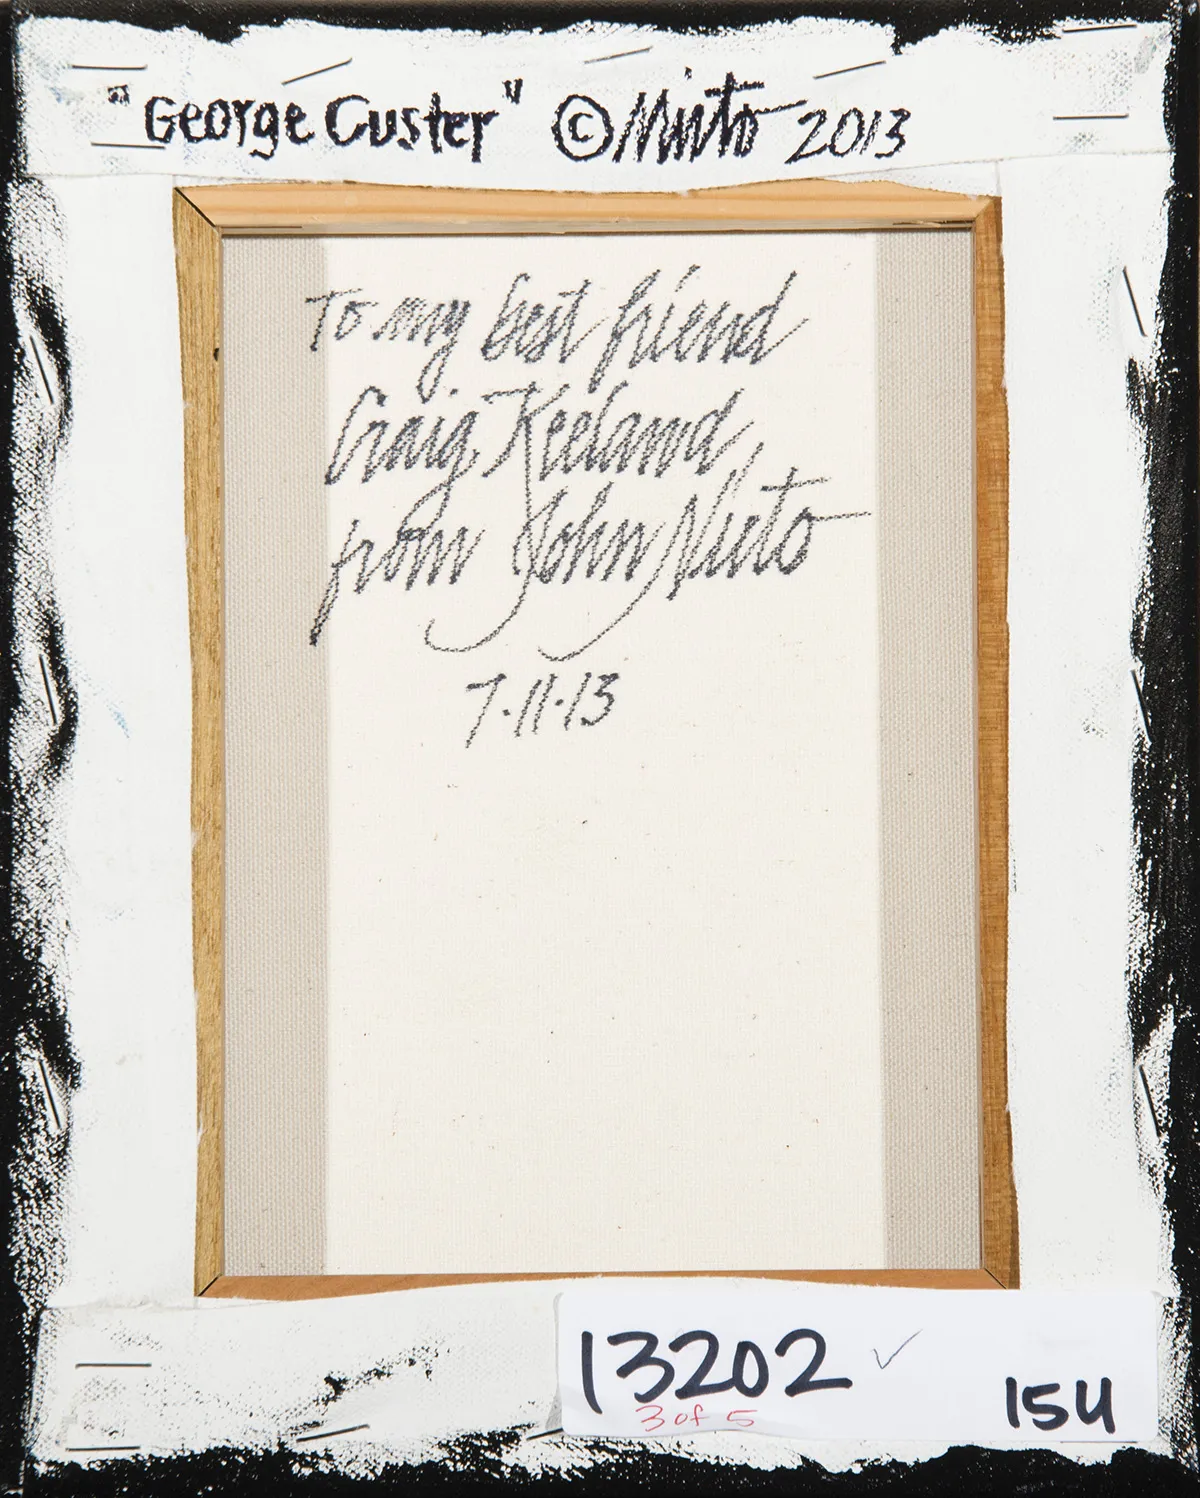 "George Custer" © Nieto 2013
To my best friend
Craig Keeland,
from John Nieto
7.11.13
13202 ✓
3 of 5
154